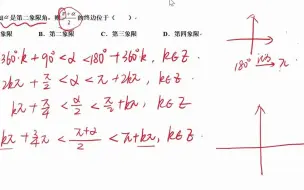 是第二象限角，则 (π+α)/2 的终边位于（ ）.
B. 第二象限 C. 第三象限 D. 第四象限
360°·k + 90° < α < 180° + 360°·k , k∈Z
2kπ + π/2 < α < π + 2kπ , k∈Z
kπ + π/4 < α/2 < π/2 + kπ , k∈Z
kπ + 3/4 π < (π+α)/2 < π + kπ , k∈Z .
180° → π